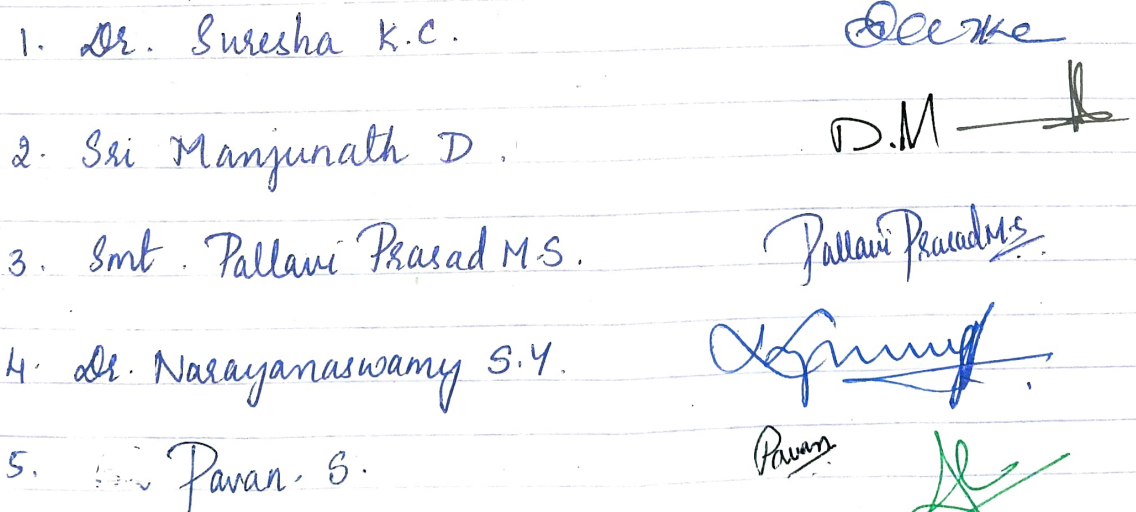 1. Dr. Suresha K.C.
2. Sri Manjunath D. D.M
3. Smt. Pallavi Prasad M.S. Pallavi Prasad M.S.
4. Dr. Narayanaswamy S.Y.
5. Pavan. S. Pavan